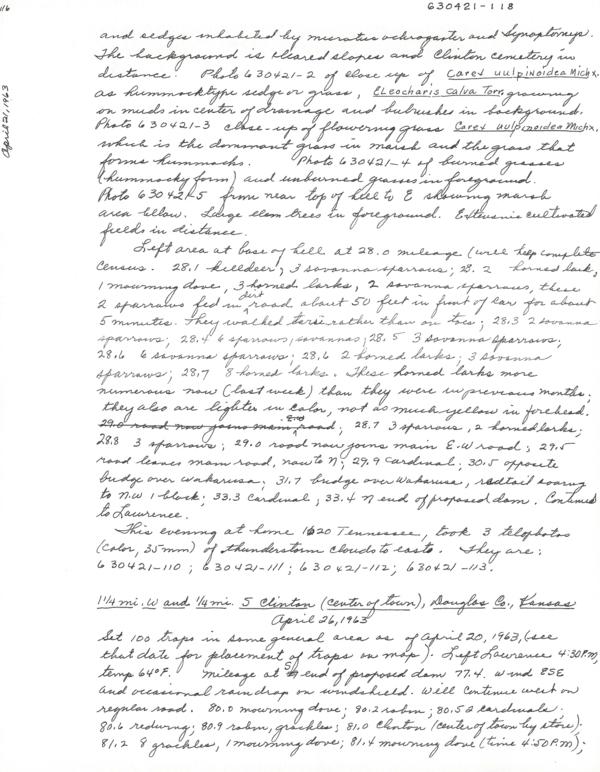 116
630421-118
April 21, 1963
and sedges inhabited by microtus ochrogaster and Synaptomys.
The background is cleared slopes and Clinton cemetery in
distance. Photo 630421-2 of close up of Carex vulpinoidea Michx.
as hummocktype sedge or grass, Eleocharis calva Torr. growing
on muds in center of drainage and bulrushes in background.
Photo 630421-3 close-up of flowering grass Carex vulpinoidea Michx.
which is the dominant grass in marsh and the grass that
forms hummocks. Photo 630421-4 of burned grasses
(hummocky form) and unburned grasses in foreground.
Photo 630421-5 from near top of hill to E showing marsh
area below. Large elm trees in foreground. Extensive cultivated
fields in distance.
Left area at base of hill at 28.0 mileage (will help complete
census. 28.1 killdeer, 3 savanna sparrows; 28.2 horned lark,
1 mourning dove, 3 horned larks, 2 savanna sparrows, these
2 sparrows fed in dirt road about 50 feet in front of car for about
5 minutes. They walked tarsi rather than on toes; 28.3 2 savanna
sparrows; 28.4 6 sparrows, savannas; 28.5 3 savanna sparrows;
28.6 6 savanna sparrows; 28.6 2 horned larks; 3 savanna
sparrows; 28.7 8 horned larks. These horned larks more
numerous now (last week) than they were in previous months;
they also are lighter in color, not as much yellow in forehead.
29.0 road now joins main E-W road; 28.7 3 sparrows, 2 horned larks;
28.8 3 sparrows; 29.0 road now joins main E-W road; 29.5
road leaves main road, now to N; 29.9 cardinal; 30.5 opposite
bridge over Wakarusa; 31.7 bridge over Wakarusa, redtail soaring
to N.W 1 block; 33.3 cardinal; 33.4 N end of proposed dam. Continued
to Lawrence.
This evening at home 1620 Tennessee, took 3 telephotos
(color, 35mm) of thunderstorm clouds to east. They are:
630421-110; 630421-111; 630421-112; 630421-113.
1 1/4 mi. W and 1/4 mi. S Clinton (center of town), Douglas Co., Kansas
April 26, 1963
Set 100 traps in same general area as of April 20, 1963, (see
that date for placement of traps on map). Left Lawrence 4:30 P.M,
temp 64°F. Mileage at S end of proposed dam 77.4. Wind 8SE
and occasional raindrop on windshield. Will continue west on
regular road. 80.0 mourning dove; 80.2 robin; 80.5 2 cardinals.
80.6 redwing; 80.9 robin, grackles; 81.0 Clinton (center of town by store);
81.2 8 grackles, 1 mourning dove; 81.4 mourning dove (time 4:50 P.M);